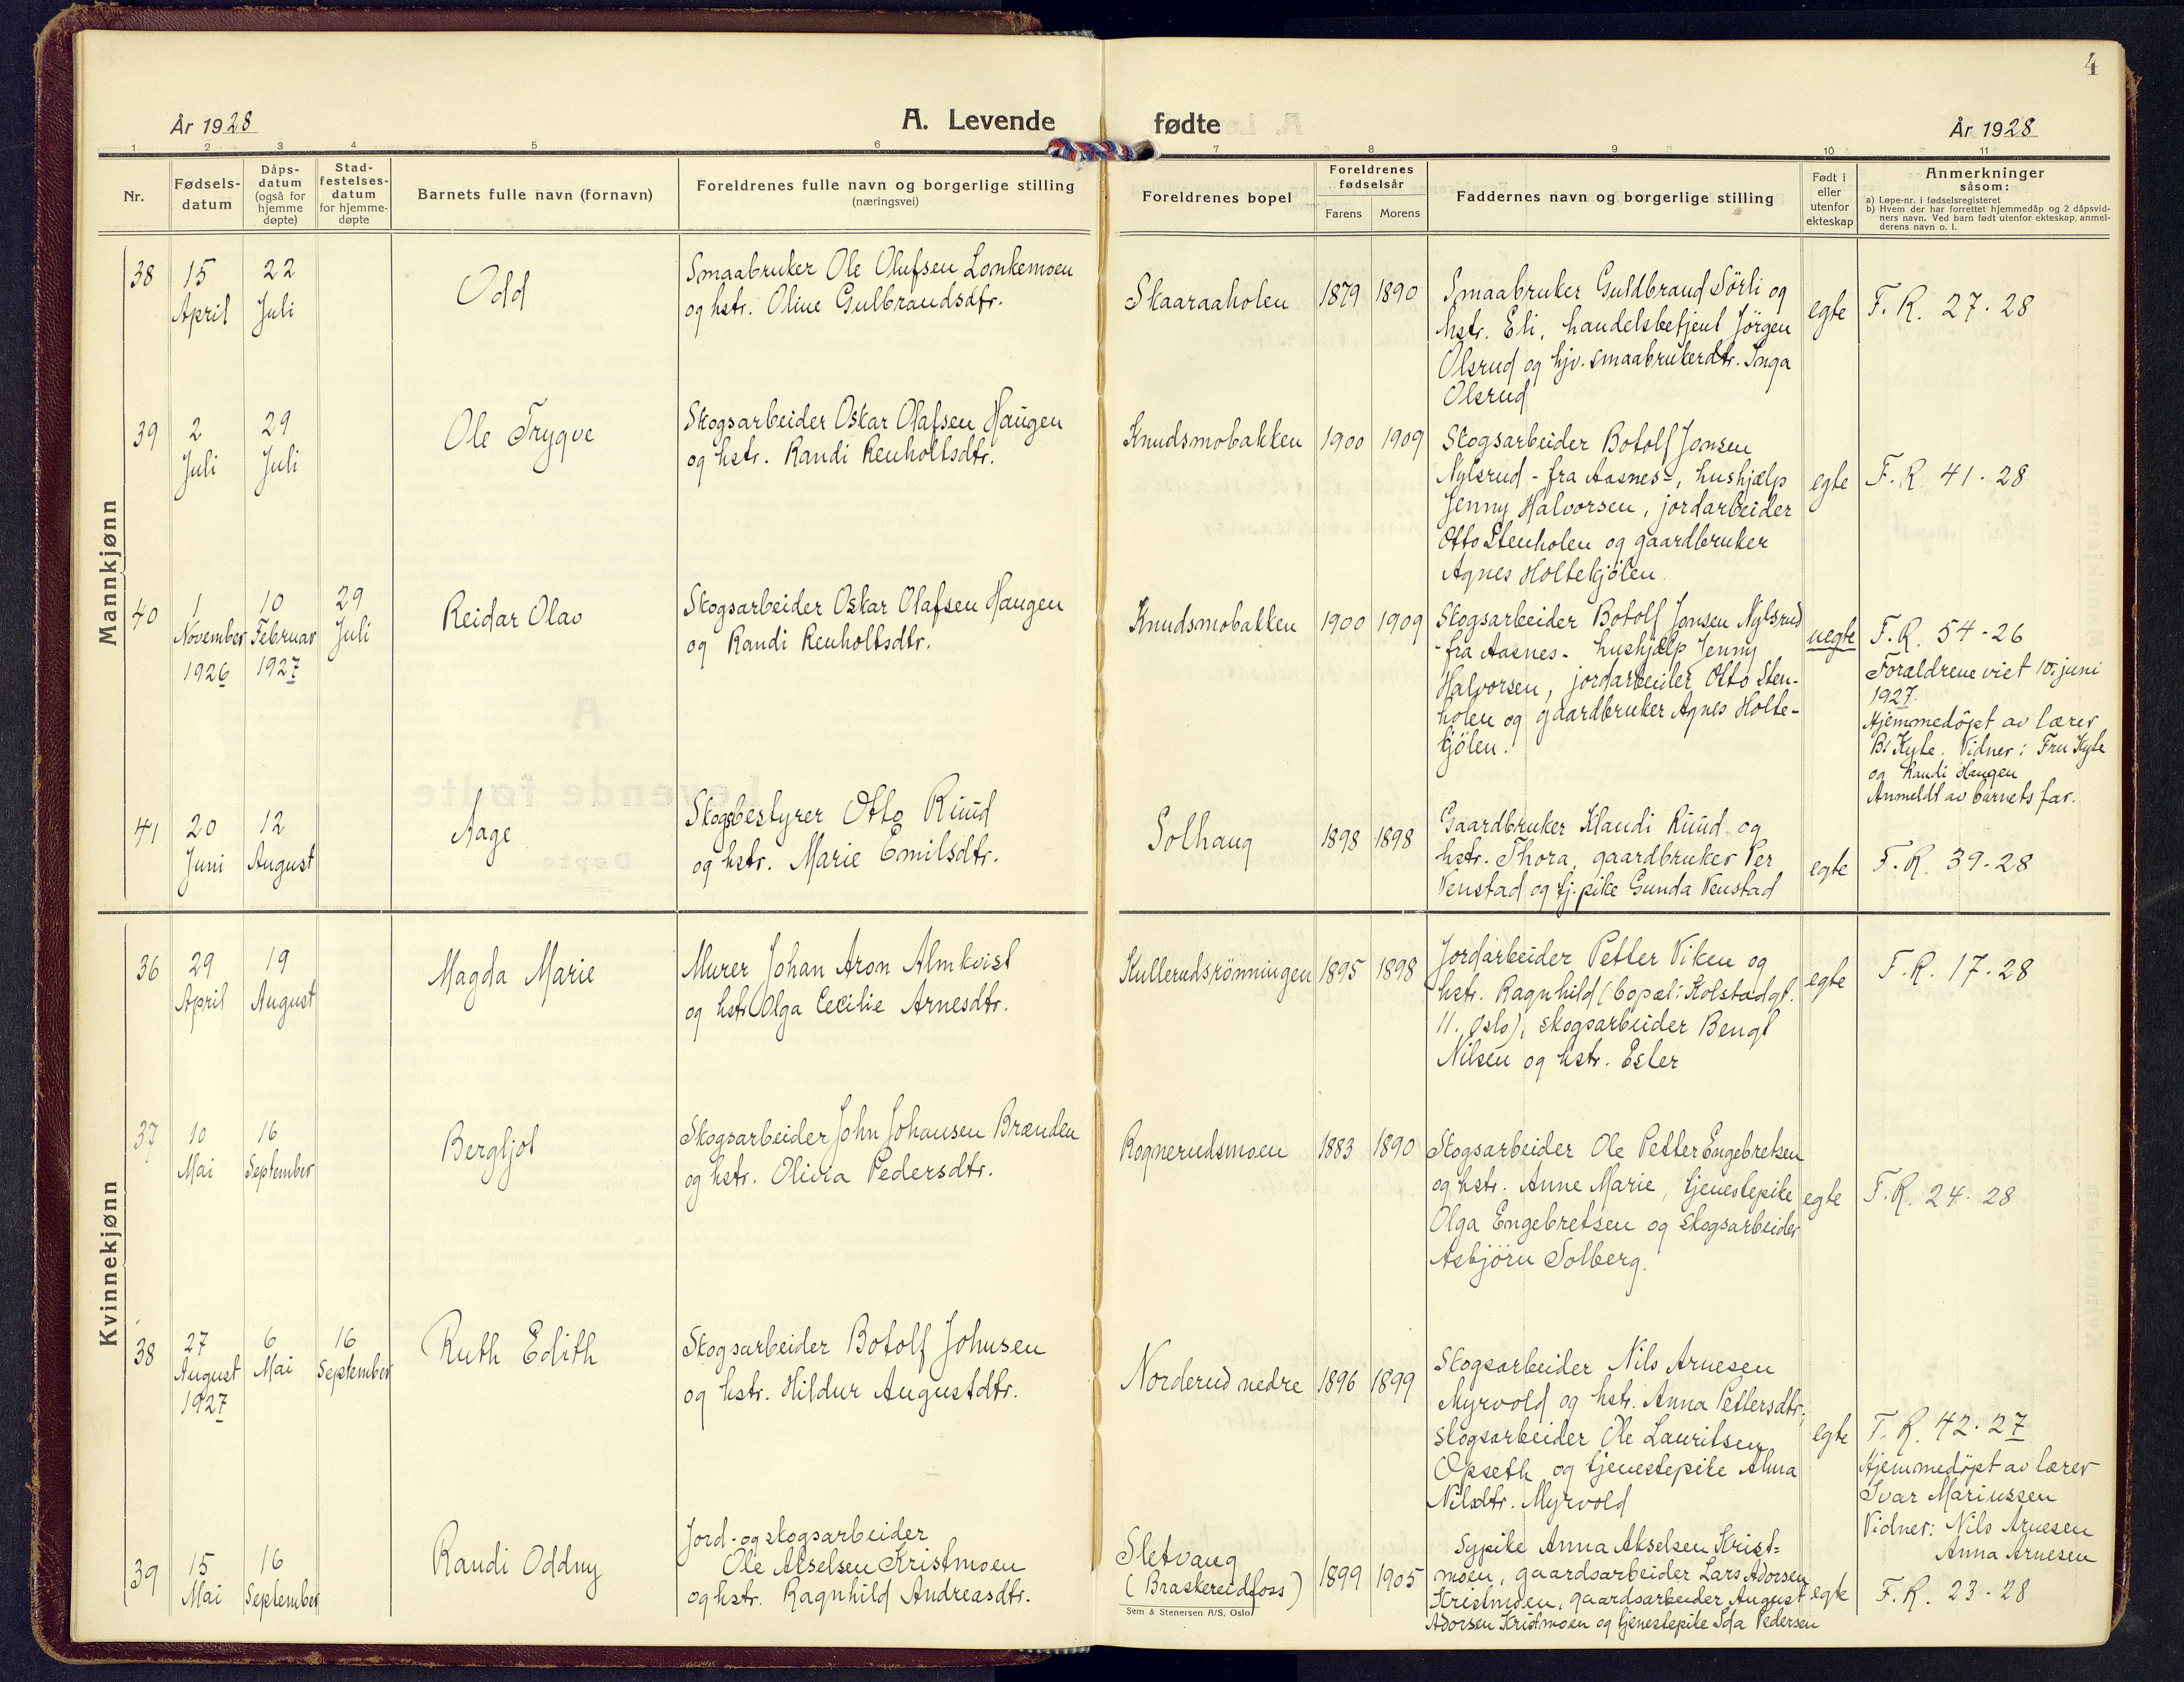 4
År 1928
A. Levende fødte
År 1928
1 2 3 4 5 6 7 8 9 10 11
Nr.
Fødsels-
datum
Dåps-
datum
(også for
hjemme
døpte)
Stad-
festelses-
datum
for hjemme-
døpte
Barnets fulle navn (fornavn)
Foreldrenes fulle navn og borgerlige stilling
(næringsvei)
Foreldrenes bopel
Foreldrenes
fødselsår
Farens Morens
Faddernes navn og borgerlige stilling
Født i
eller
utenfor
ekteskap
Anmerkninger
såsom:
a) Løpe-nr. i fødselsregisteret
b) Hvem der har forrettet hjemmedåp og 2 dåpsvid-
ners navn. Ved barn født utenfor ekteskap, anmel-
derens navn o. l.
Mannkjønn
38
15
April
22
Juli
Odd
Smaabruker Ole Olufsen Lonkemoen
og hstr. Oline Gulbrandsdtr.
Skaaraaholen
1879 1890
Smaabruker Guldbrand Sörli og
hstr. Eli, handelsbetjent Jörgen
Olsrud og hjv. smaabrukerdtr. Inga
Olsrud
egte
F. R. 27-28
39
2
Juli
29
Juli
Ole Trygve
Skogsarbeider Oskar Olafsen Haugen
og hstr. Randi Renholtsdtr.
Knudsmobakken
1900 1909
Skogsarbeider Botolf Jonsen
Nylsrud - fra Aasnes-, hushjælp
Jenny Halvorsen, jordarbeider
Otto Stenholen og gaardbruker
Agnes Holtekjölen.
egte
F. R. 41-28
40
1
November
1926
10
Februar
1927
29
Juli
Reidar Olav
Skogsarbeider Oskar Olafsen Haugen
og Randi Renholtsdtr.
Knudsmobakken
1900 1909
Skogsarbeider Botolf Jonsen Nylsrud
- fra Aasnes- hushjælp Jenny
Halvorsen, jordarbeider Otto Sten-
holen og gaardbruker Agnes Holte-
kjölen.
uegte
F. R. 54-26
Forældrene viet 10. juni
1927.
Hjemmedöpt av lærer
B. Kyte. Vidner: Fru Kyte
og Randi Haugen
Anmeldt av barnets far.
41
20
Juni
12
August
Aage
Skogbestyrer Otto Ruud
og hstr. Marie Emilsdtr.
Solhaug
1898 1898
Gaardbruker Klaudi Ruud og
hstr. Thora, gaardbruker Per
Venstad og tj.pike Gunda Venstad
egte
F. R. 39-28
Kvinnekjønn
36
29
April
19
August
Magda Marie
Murer Johan Aron Almkvist
og hstr Olga Cecilie Arnesdtr.
Kullerudsrönningen
1895 1898
Jordarbeider Petter Viken og
hstr. Ragnhild (bopæl: Kolstadgt.
11. Oslo), skogsarbeider Bengt
Nilsen og hstr. Ester
egte
F. R. 17-28
37
10
Mai
16
September
Bergljot
Skogsarbeider John Johansen Brænden
og hstr. Olivia Pedersdtr.
Rognerudsmoen
1883 1890
Skogsarbeider Ole Petter Engebretsen
og hstr. Anne Marie, tjenestepike
Olga Engebretsen og skogsarbeider
Asbjörn Solberg.
egte
F. R. 24-28
38
27
August
1927
6
Mai
16
September
Ruth Edith
Skogsarbeider Botolf Johnsen
og hstr. Hildur Augustdtr.
Norderud nedre
1896 1899
Skogsarbeider Nils Arnesen
Myrvold og hstr. Anna Pettersdtr,
skogsarbeider Ole Lauritsen
Opseth og tjenestepike Alma
Nilsdtr. Myrvold
egte
F. R. 42-27
Hjemmedöpt av lærer
Ivar Mariussen
Vidner: Nils Arnesen
Anna Arnesen
39
15
Mai
16
September
Randi Oddny
Jord- og skogsarbeider
Ole Akselsen Kristmoen
og hstr. Ragnhild Andreasdtr.
Sletvang
(Braskereidfoss)
1899 1905
Sypike Anna Akselsen Krist-
moen, gaardsarbeider Lars Adorsen
Kristmoen, gaardsarbeider August
Adorsen Kristmoen og tjenestepike Ida Pedersen
egte
F. R. 23-28
Sem & Stenersen A/S, Oslo